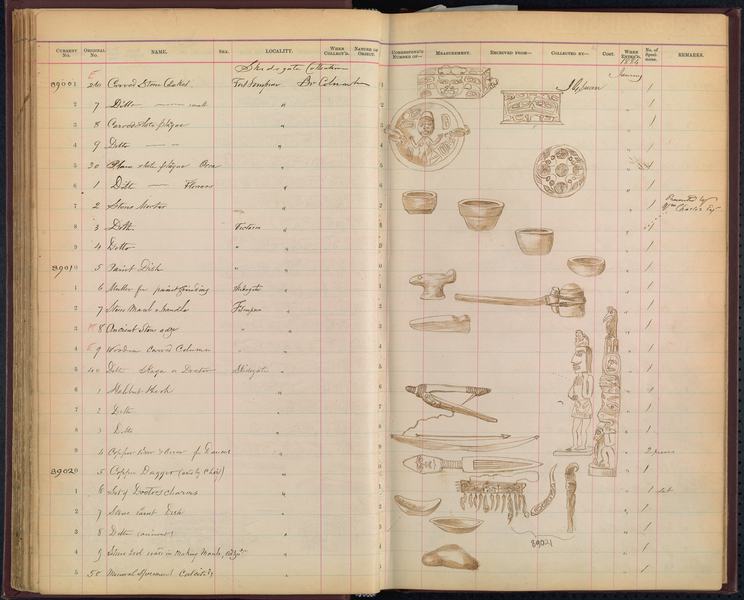 CURRENT No. ORIGINAL No. NAME. SEX. LOCALITY. WHEN COLLECT'D. NATURE OF OBJECT. CORRESPOND'G NUMBER OF— MEASUREMENT. RECEIVED FROM— COLLECTED BY— COST. WHEN ENTER'D. No. of Speci-mens. REMARKS.
1884
Skidegate Collection January
89001 26 Carved Stone Casket Fort Simpson Br Columbia 1 1
2 7 Ditto small " 2 " 1
3 8 Carved slate plaque " 3 " 1
4 9 Ditto — — " 4 "
5 30 Plain slate plaque " 5 "
6 1 Ditto — Flowers " 6 " 1
7 2 Stone Mortar " 7 " 1 Presented by
Charles
8 3 Ditto Victoria 8 " 1
9 4 Ditto " 9 " 1
89010 5 Paint Dish " 0 " 1
1 6 Muller for paint grinding Skidegate 1 " 1
2 7 Stone Maul & handle Ft Simpson 2 " 1
3 8 Ancient Stone adze " 3 " 1
4 9 Wooden carved Column " 4 " 1
5 40 Ditto Skaga or Doctor Skidegate 5 " 1
6 1 Halibut Hook " 6 " 1
7 2 Ditto " 7 " 1
8 3 Ditto " 8 " 1
9 4 Copper Bow & Arrow for Dances " 9 " 2 pieces
89020 5 Copper Dagger " 0 " 1
1 6 Set of Doctors charms " 1 " 1 set
2 7 Stone paint Dish " 2 " 1
3 8 Ditto " 3 " 1
89021
4 9 Stone tool used in making Mauls, " 4 " 1
5 50 Mineral specimen " 5 " 1